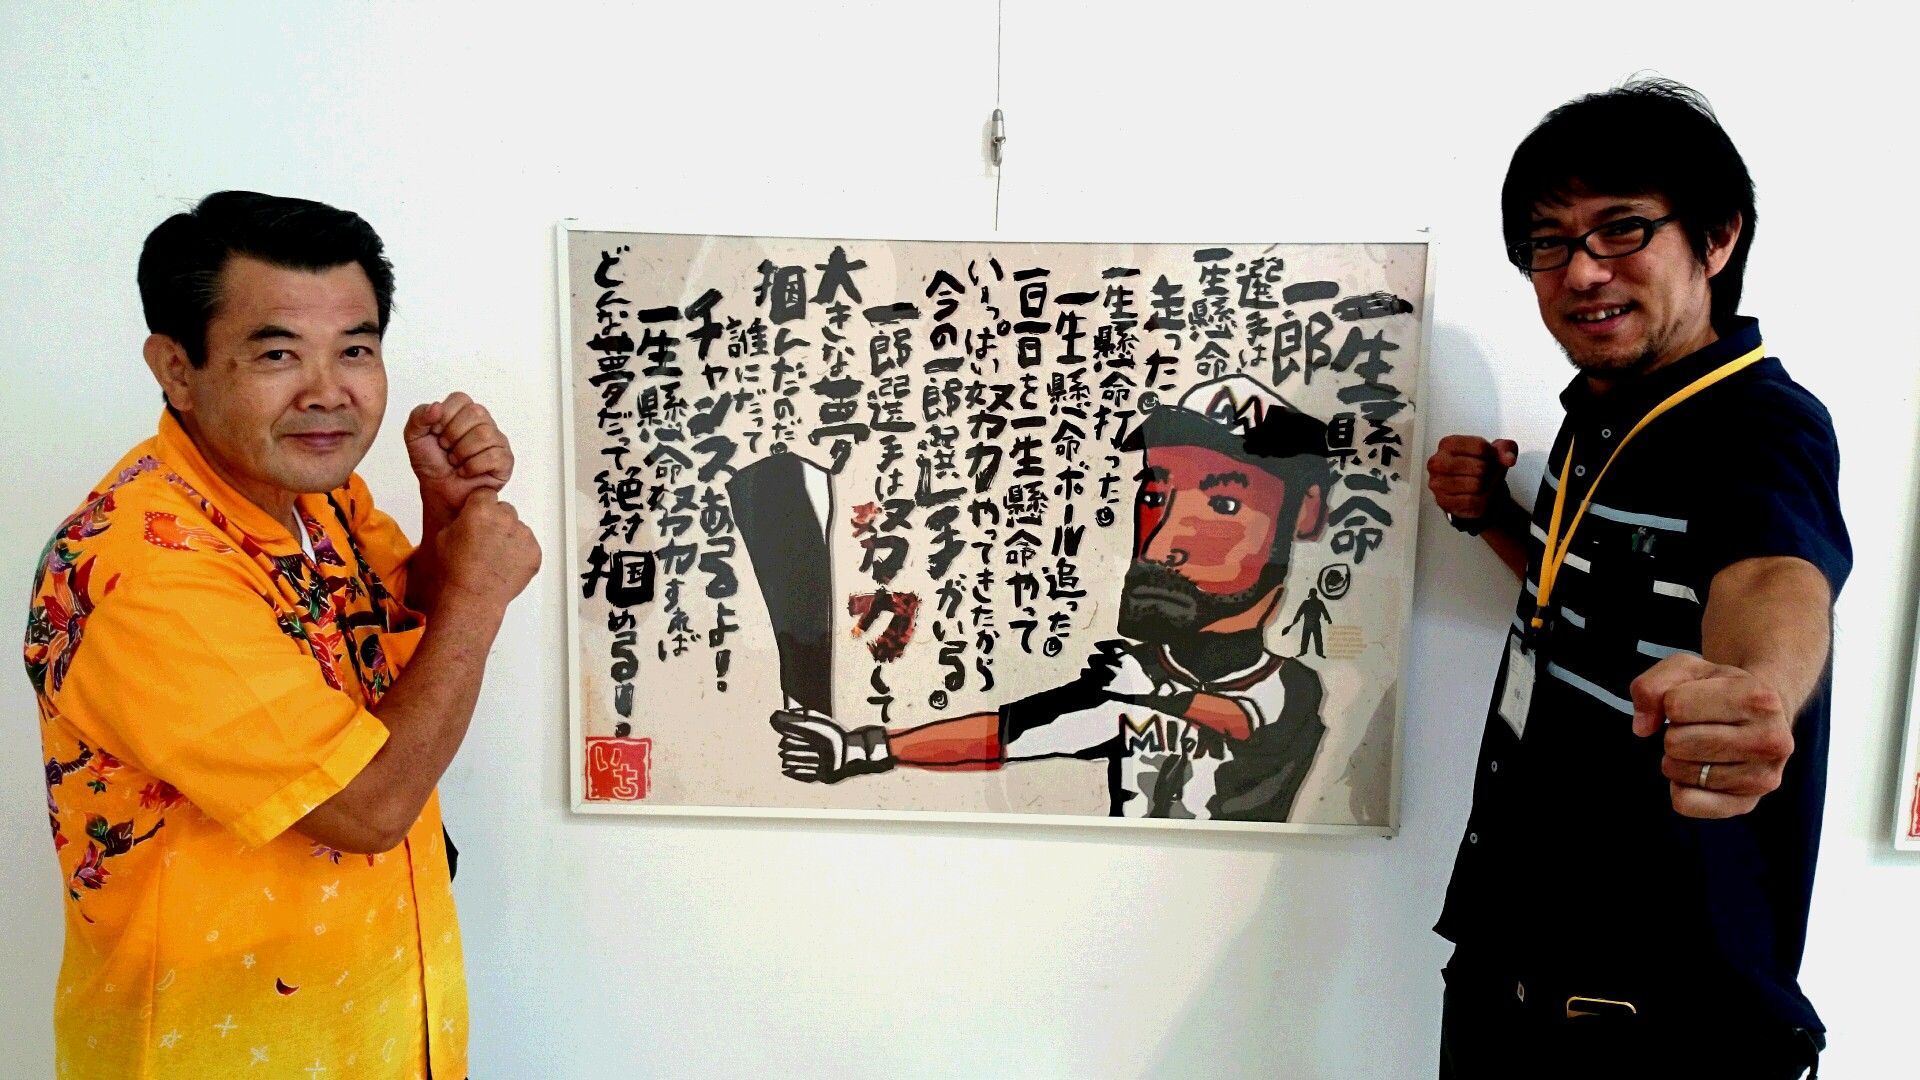 一生懸命
一郎
選手は
一生懸命
走った。
一生懸命打った。
一生懸命ボール追った。
一日一日を一生懸命やって
いっぱい努力やってきたから
今の一郎選手がいる。
一郎選手は努力して
大きな夢
掴んだのだ。
誰にだって
チャンスあるよ!
一生懸命努力すれば
どんな夢だって絶対掴める!。
いち
M
MIAMI